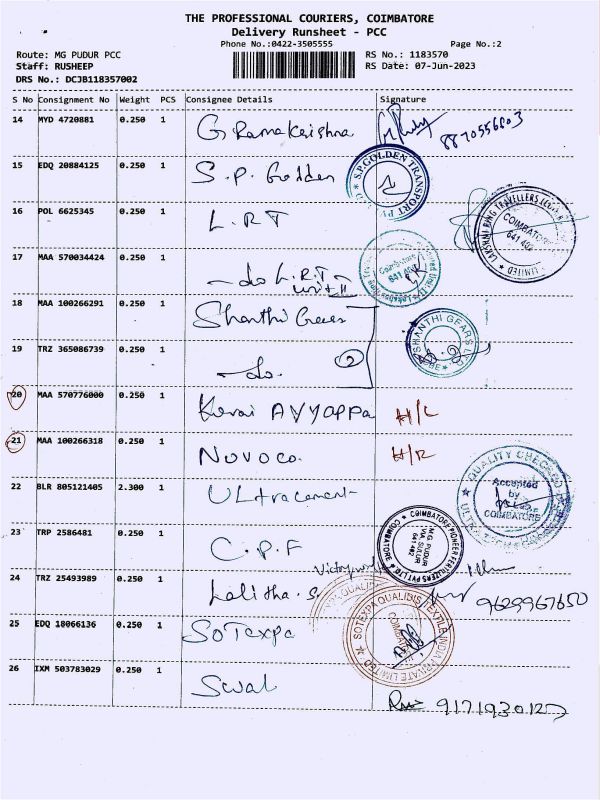 THE PROFESSIONAL COURIERS, COIMBATORE
Delivery Runsheet - PCC
Phone No.:0422-3505555 Page No.:2
Route: MG PUDUR PCC RS No.: 1183570
Staff: RUSHEEP RS Date: 07-Jun-2023
DRS No.: DCJB118357002
S No Consignment No Weight PCS Consignee Details Signature
14 MYD 4720881 0.250 1 G Ramakrishna 8870556803
15 EDQ 20884125 0.250 1 S.P. Golden S.P.GOLDEN TRANSPORT
16 POL 6625345 0.250 1 L.R.T LAKSHMI RING TRAVELLERS COIMBATORE LIMITED
17 MAA 570034424 0.250 1 -do L.R.T unit II Coimbatore
18 MAA 100266291 0.250 1 Shanthi Gears SHANTHI GEARS
19 TRZ 365086739 0.250 1 -do-
20 MAA 570776000 0.250 1 AYYAPPA
21 MAA 100266318 0.250 1 Novoco
22 BLR 805121405 2.300 1 Ultracement QUALITY CHECKED Accepted by COIMBATORE
23 TRP 2586481 0.250 1 C.P.F COIMBATORE PIONEER FERTILIZERS PVT LTD M.G. PUDUR VIA SULUR 641 402
24 TRZ 25493989 0.250 1 Lalitha 9629967650
25 EDQ 18066136 0.250 1 SoTexpa SOTEXPA QUALIDIS TEXTILE INDIA PRIVATE LIMITED
26 IXM 503783029 0.250 1 9171930127